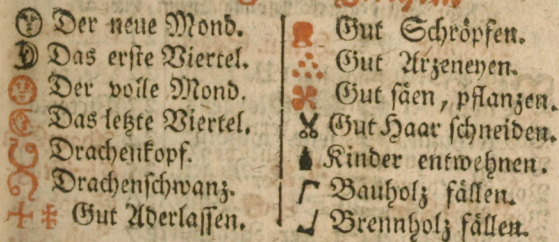 Der neue Mond.
Das erſte Viertel.
Der volle Mond.
Das letzte Viertel.
Drachenkopf.
Drachenſchwanz.
Gut Aderlaſſen.
Gut Schröpfen.
Gut Arzeneyen.
Gut ſäen, pflanzen.
Gut Haar ſchneiden.
Kinder entwehnen.
Bauholz fällen.
Brennholz fällen.